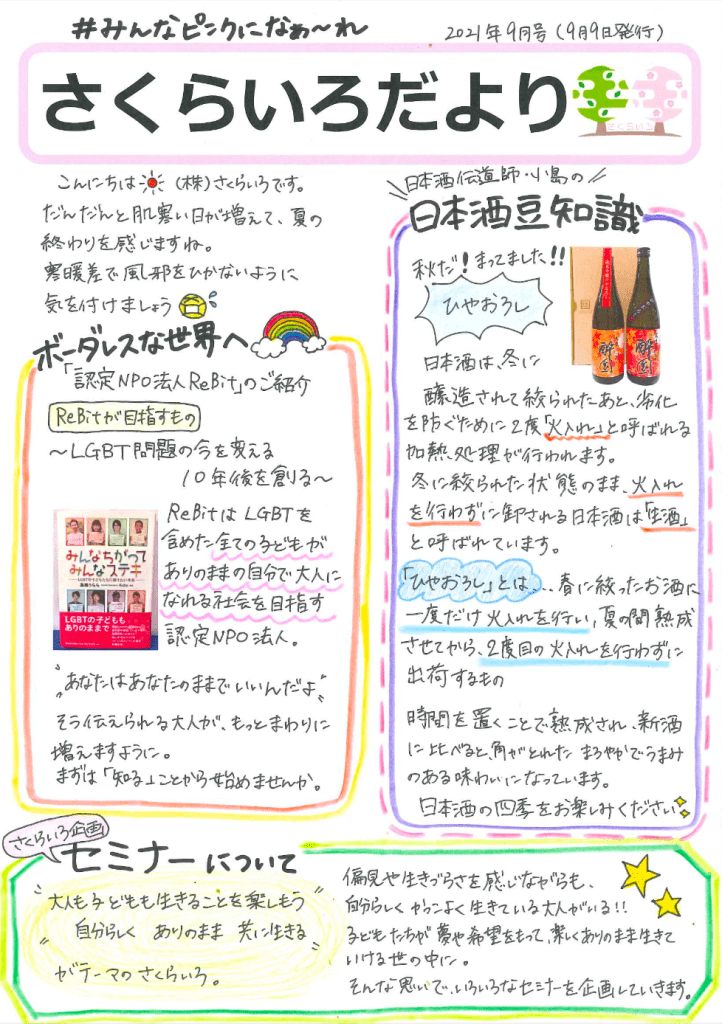 #みんなピンクになぁ～れ
2021年9月号（9月9日発行）
さくらいろだより
さくらいろ
こんにちは (株)さくらいろです。
だんだんと肌寒い日が増えて、夏の
終わりを感じますね。
寒暖差で風邪をひかないように
気を付けましょう
ボーダレスな世界へ
「認定NPO法人ReBit」のご紹介
ReBitが目指すもの
～LGBT問題の今を変える
10年後を創る～
みんなちがって
みんなステキ
LGBTの子どもも
ありのままで
ReBitはLGBTを
含めた全ての子どもが
ありのままの自分で大人に
なれる社会を目指す
認定NPO法人。
〝あなたはあなたのままでいいんだよ〟
そう伝えられる大人が、もっとまわりに
増えますように。
まずは「知る」ことから始めませんか。
日本酒伝道師・小島の
日本酒豆知識
秋だ!まってました!!
ひやおろし
酔園
酔園
日本酒は、冬に
醸造されて絞られたあと、劣化
を防ぐために2度「火入れ」と呼ばれる
加熱処理が行われます。
冬に絞られた状態のまま、火入れ
を行わずに卸される日本酒は「生酒」
と呼ばれています。
「ひやおろし」とは、、、春に絞ったお酒に
一度だけ火入れを行い、夏の間熟成
させてから、2度目の火入れを行わずに
出荷するもの
時間を置くことで熟成され、新酒
に比べると、角がとれたまろやかでうまみ
のある味わいになっています。
日本酒の四季をお楽しみください
さくらいろ企画
セミナーについて
〝大人も子どもも生きることを楽しもう〟
〝自分らしく ありのまま 共に生きる〟
がテーマのさくらいろ。
偏見や生きづらさを感じながらも、
自分らしくかっこよく生きている大人がいる!!
子どもたちが夢や希望をもって、楽しくありのまま生きて
いける世の中に。
そんな思いで、いろいろなセミナーを企画していきます。